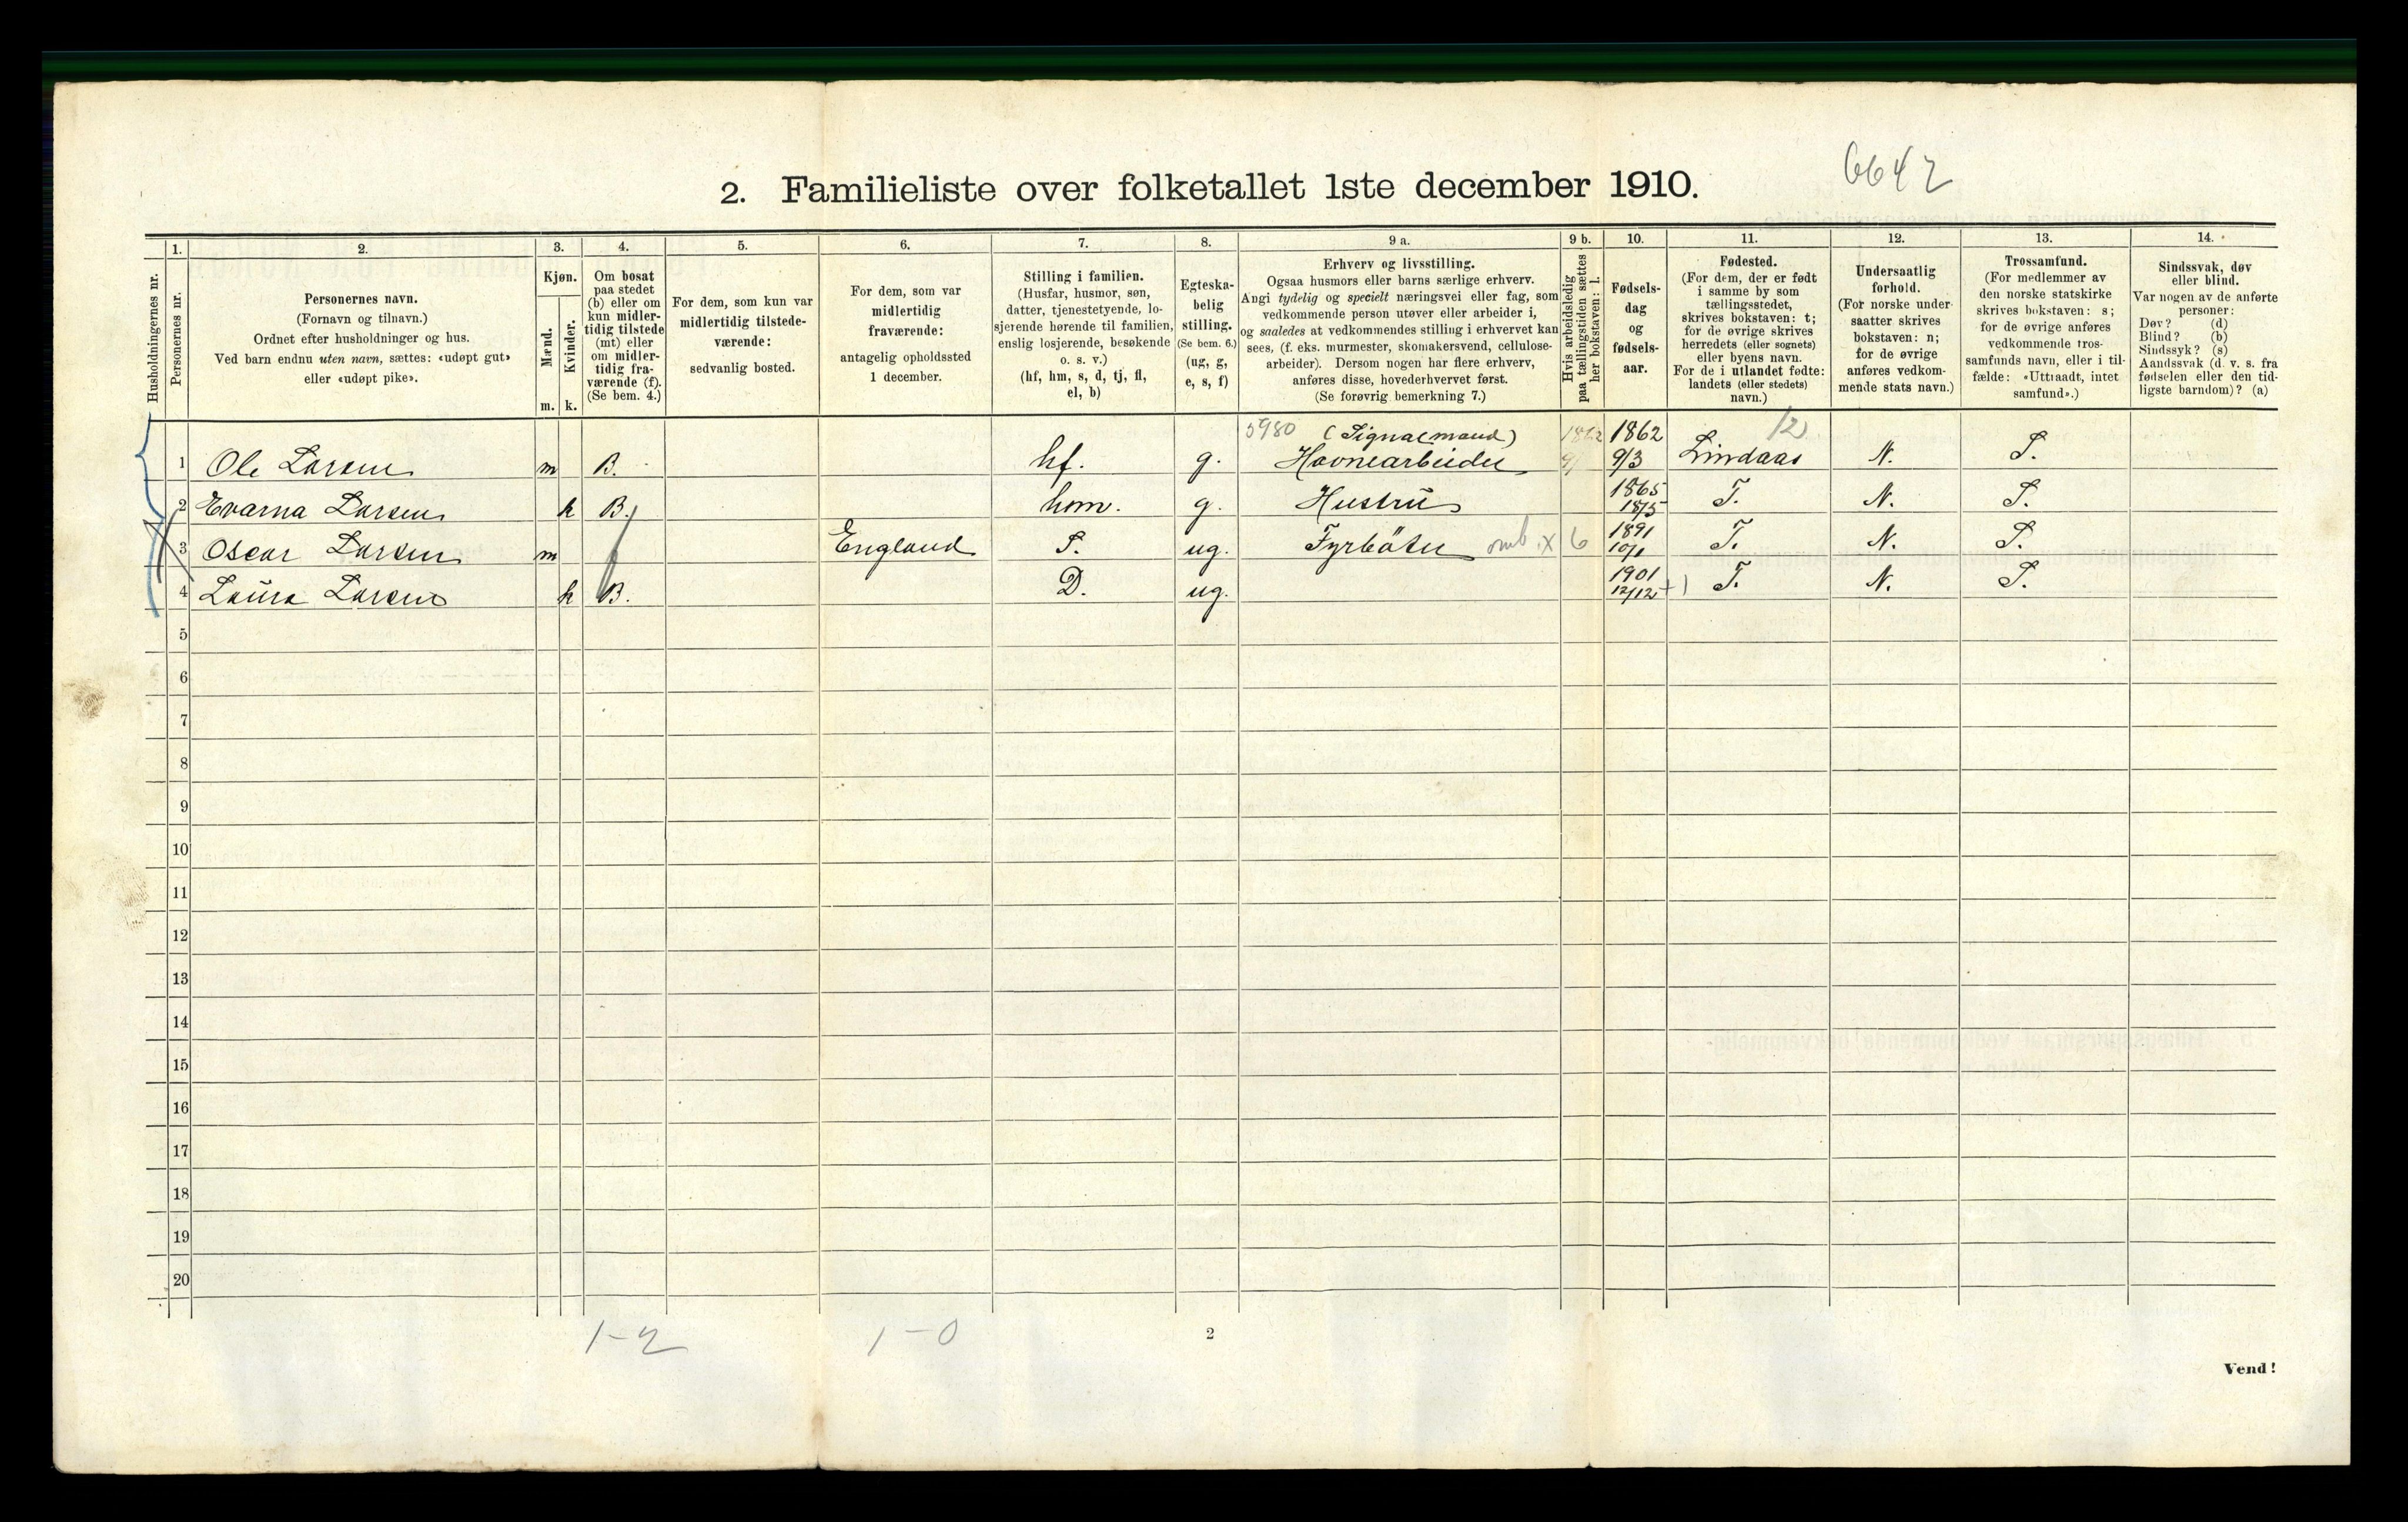 6642
2. Familieliste over folketallet 1ste december 1910.
1. 2. 3. 4. 5. 6. 7. 8. 9 a. 9 b. 10. 11. 12. 13. 14.
Husholdningernes nr.
Personernes nr.
Personernes navn.
(Fornavn og tilnavn.)
Ordnet efter husholdninger og hus.
Ved barn endnu uten navn, sættes: «udøpt gut»
eller «udøpt pike».
Kjøn.
Mænd.
Kvinder.
m. k.
Om bosat
paa stedet
(b) eller om
kun midler-
tidig tilstede
(mt) eller
om midler-
tidig fra-
værende (f).
(Se bem. 4.)
For dem, som kun var
midlertidig tilstede-
værende:
sedvanlig bosted.
For dem, som var
midlertidig
fraværende:
antagelig opholdssted
1 december.
Stilling i familien.
(Husfar, husmor, søn,
datter, tjenestetyende, lo-
sjerende hørende til familien,
enslig losjerende, besøkende
o. s. v.)
(hf, hm, s, d, tj, fl,
el, b)
Egteska-
belig
stilling.
(Se bem. 6.)
(ug, g,
e, s, f)
Erhverv og livsstilling.
Ogsaa husmors eller barns særlige erhverv.
Angi tydelig og specielt næringsvei eller fag, som
vedkommende person utøver eller arbeider i,
og saaledes at vedkommendes stilling i erhvervet kan
sees, (f. eks. murmester, skomakersvend, cellulose-
arbeider). Dersom nogen har flere erhverv,
anføres disse, hovederhvervet først.
(Se forøvrig bemerkning 7.)
Hvis arbeidsledig
paa tællingstiden sættes
her bokstaven: l.
Fødsels-
dag
og
fødsels-
aar.
Fødested.
(For dem, der er født
i samme by som
tællingsstedet,
skrives bokstaven: t;
for de øvrige skrives
herredets (eller sognets)
eller byens navn.
For de i utlandet fødte:
landets (eller stedets)
navn.)
Undersaatlig
forhold.
(For norske under-
saatter skrives
bokstaven: n;
for de øvrige
anføres vedkom-
mende stats navn.)
Trossamfund.
(For medlemmer av
den norske statskirke
skrives bokstaven: s;
for de øvrige anføres
vedkommende tros-
samfunds navn, eller i til-
fælde: «Uttraadt, intet
samfund».)
Sindssvak, døv
eller blind.
Var nogen av de anførte
personer:
Døv? (d)
Blind? (b)
Sindssyk? (s)
Aandssvak (d. v. s. fra
fødselen eller den tid-
ligste barndom)? (a)
5980 (Signalmand) 1862 1862 12
1 Ole Larsen m B. hf. g. Havnearbeider 9/3 Lindaas N. S.
1865
2 Evarna Larsen k B. hm. g. Hustru 18/5 T. N. S.
1891
3 Oscar Larsen m England S. ug. Fyrböter omb. x 6 10/1 T. N. S.
1901
4 Laura Larsen k B. D. ug. 12/12 T. N. S.
5
6
7
8
9
10
11
12
13
14
15
16
17
18
19
20
1-2 1-0 2
Vend!